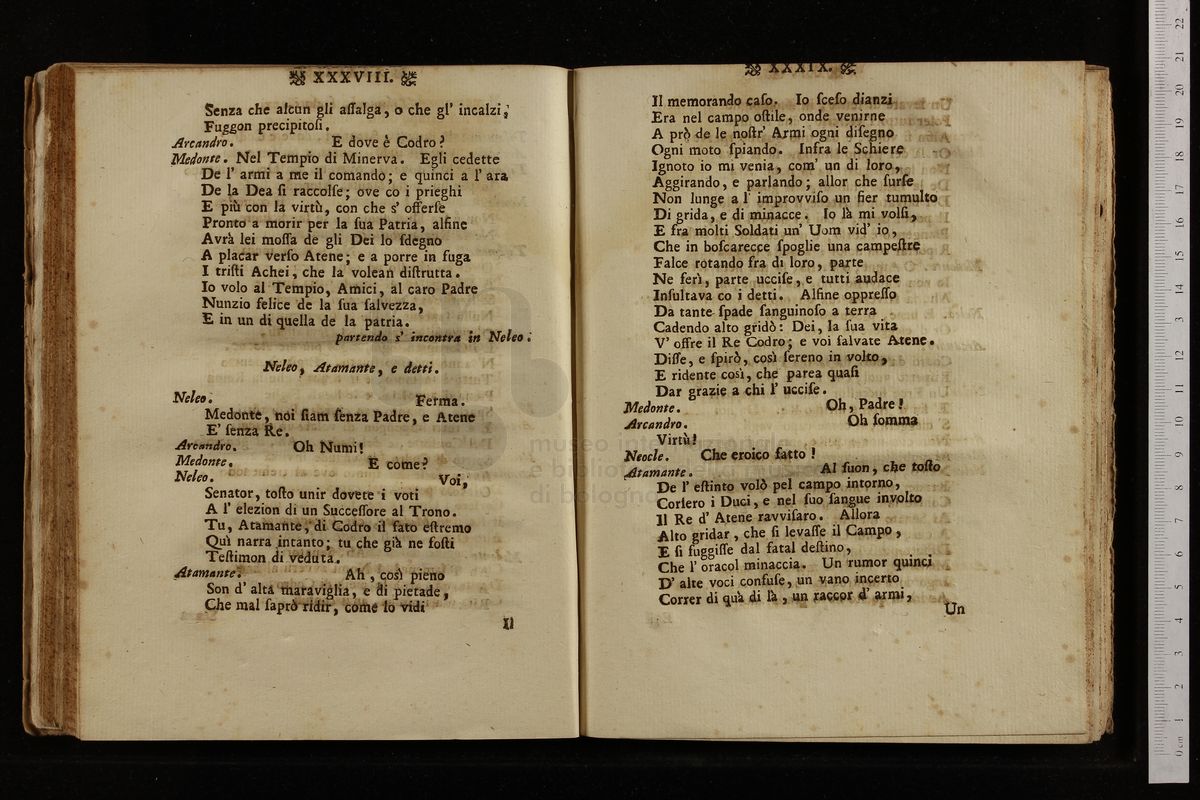 XXXVIII.
Senza che alcun gli aſſalga, o che gl' incalzi,
Fuggon precipitoſi.
Arcandro. E dove è Codro?
Medonte. Nel Tempio di Minerva. Egli cedette
De l' armi a me il comando; e quinci a l' ara
De la Dea ſi raccolſe; ove co i prieghi
E più con la virtù, con che s' offerſe
Pronto a morir per la ſua Patria, alfine
Avrà lei moſſa de gli Dei lo ſdegno
A placar verſo Atene; e a porre in fuga
I triſti Achei, che la volean diſtrutta.
Io volo al Tempio, Amici, al caro Padre
Nunzio felice de la ſua ſalvezza,
E in un di quella de la patria.
partendo s' incontra in Neleo.
Neleo, Atamante, e detti.
Neleo. Ferma.
Medonte, noi ſiam ſenza Padre, e Atene
E' ſenza Re.
Arcandro. Oh Numi!
Medonte. E come?
Neleo. Voi,
Senator, toſto unir dovete i voti
A l' elezion di un Succeſſore al Trono.
Tu, Atamante, di Codro il fato eſtremo
Quì narra intanto; tu che già ne foſti
Teſtimon di veduta.
Atamante. Ah, così pieno
Son d' alta maraviglia, e di pietade,
Che mal ſaprò ridir, come lo vidi
Il
XXXIX.
Il memorando caſo. Io ſceſo dianzi
Era nel campo oſtile, onde venirne
A prò de le noſtr' Armi ogni diſegno
Ogni moto ſpiando. Infra le Schiere
Ignoto io mi venia, com' un di loro,
Aggirando, e parlando; allor che ſurſe
Non lunge a l' improvviſo un fier tumulto
Di grida, e di minacce. Io là mi volſi,
E fra molti Soldati un' Uom vid' io,
Che in boſcarecce ſpoglie una campeſtre
Falce rotando fra di loro, parte
Ne ferì, parte ucciſe, e tutti audace
Inſultava co i detti. Alfine oppreſſo
Da tante ſpade ſanguinoſo a terra
Cadendo alto gridò: Dei, la ſua vita
V' offre il Re Codro; e voi ſalvate Atene.
Diſſe, e ſpirò, così ſereno in volto,
E ridente così, che parea quaſi
Dar grazie a chi l' ucciſe.
Medonte. Oh, Padre!
Arcandro. Oh ſomma
Virtù!
Neocle. Che eroico fatto!
Atamante. Al ſuon, che toſto
De l' eſtinto volò pel campo intorno,
Corſero i Duci, e nel ſuo ſangue involto
Il Re d' Atene ravviſaro. Allora
Alto gridar, che ſi levaſſe il Campo,
E ſi fuggiſſe dal fatal deſtino,
Che l' oracol minaccia. Un rumor quinci
D' alte voci confuſe, un vano incerto
Correr di quà di là, un raccor d' armi,
Un